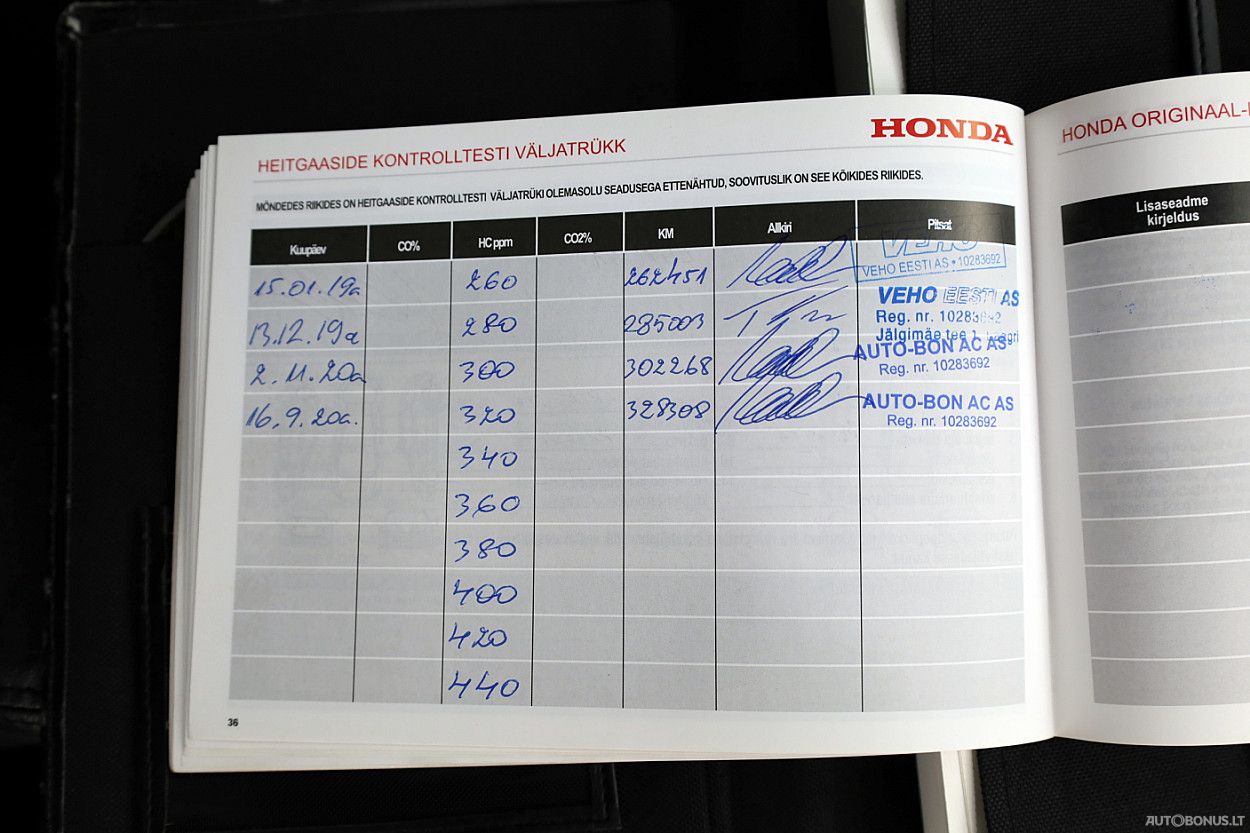 HONDA
HEITGAASIDE KONTROLLTESTI VÄLJATRÜKK
MÕNDEDES RIIKIDES ON HEITGAASIDE KONTROLLTESTI VÄLJATRÜKI OLEMASOLU SEADUSEGA ETTENÄHTUD, SOOVITUSLIK ON SEE KÕIKIDES RIIKIDES.
Kuupäev CO% HC ppm CO2% KM Allkiri Pitsat
15.01.19a 260 262451 VEHO
VEHO EESTI AS • 10283692
13.12.19a 280 285003 VEHO EESTI AS
Reg. nr. 10283692
Jälgimäe tee 1,
2.11.20a 300 302268 AUTO-BON AC AS
Reg. nr. 10283692
16.9.20a. 320 328308 AUTO-BON AC AS
Reg. nr. 10283692
340
360
380
400
420
440
36
HONDA ORIGINAAL-
Lisaseadme
kirjeldus
AUTOBONUS.LT